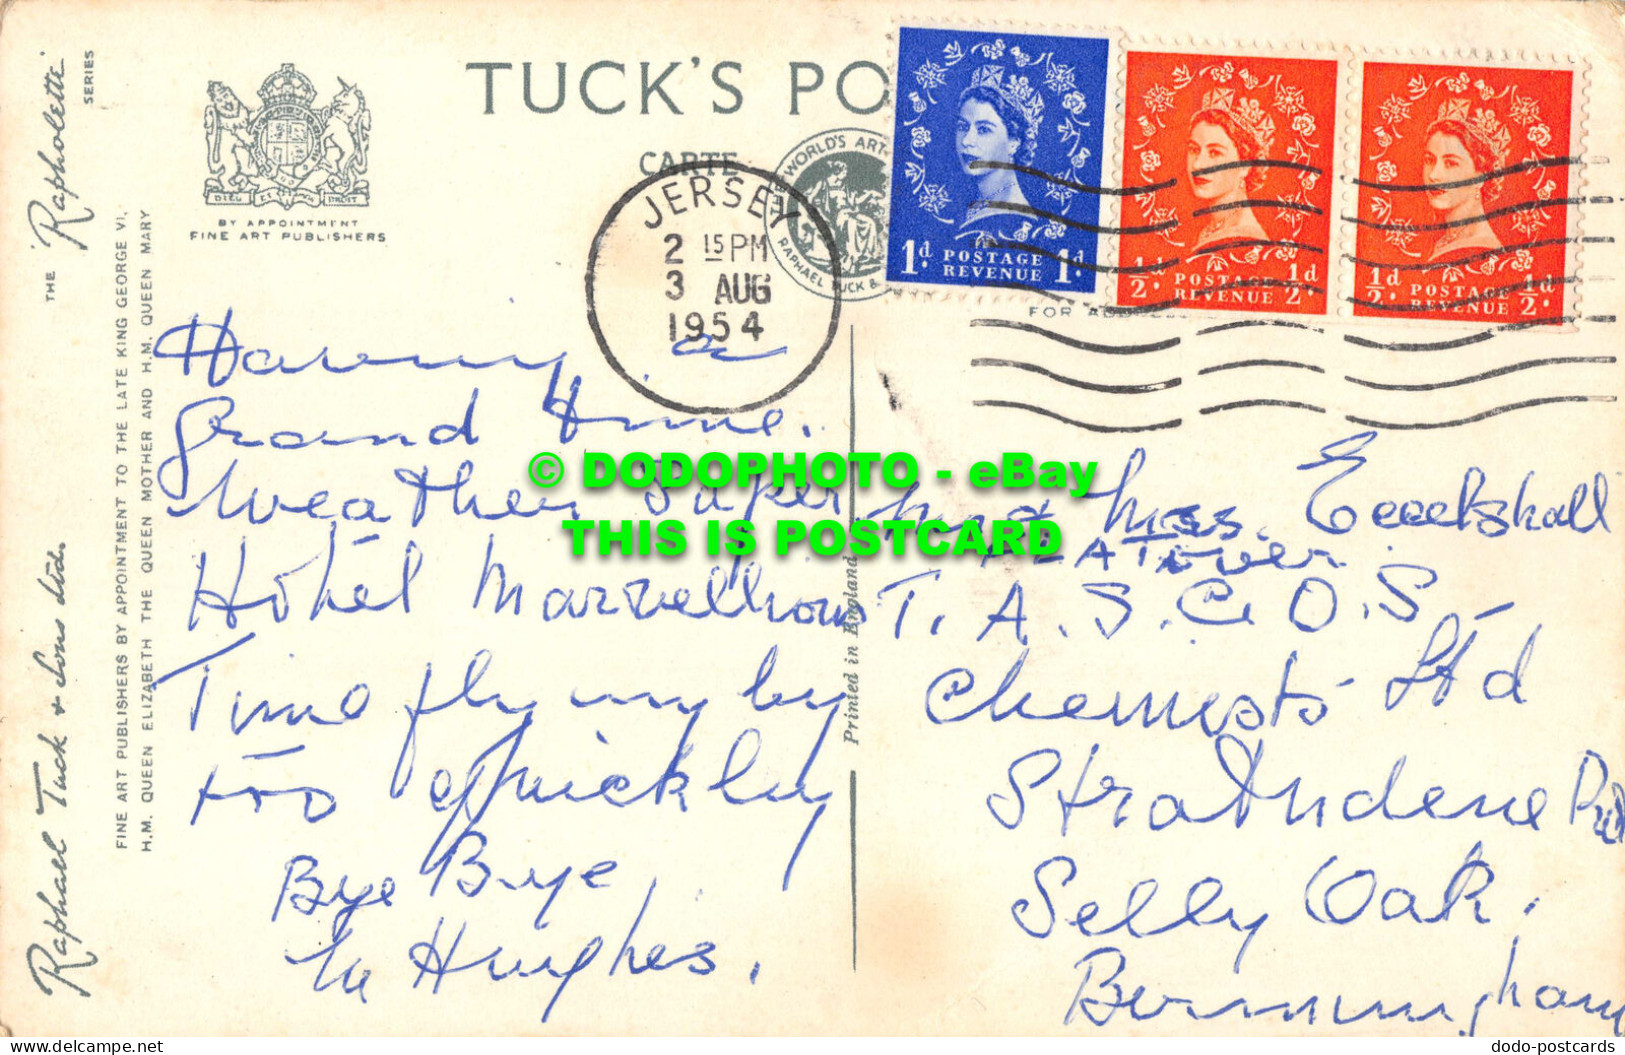 TUCK'S PO
CARTE
BY APPOINTMENT
FINE ART PUBLISHERS
DIEU ET MON DROIT
THE 'Rapholette' SERIES
Raphael Tuck & Sons Ltd.
FINE ART PUBLISHERS BY APPOINTMENT TO THE LATE KING GEORGE VI,
H.M. QUEEN ELIZABETH THE QUEEN MOTHER AND H.M. QUEEN MARY
WORLD'S ART
RAPHAEL TUCK &
JERSEY
2 15 PM
3 AUG
1954
1d. POSTAGE REVENUE 1d.
½d. POSTAGE REVENUE ½d.
½d. POSTAGE REVENUE ½d.
FOR ADDRE
Having a
Grand Time.
Weather Super
Hotel Marvellous
Time flying by
too quickly
Bye Bye
M Hughes.
Printed in England
Mr & Mrs. Eccelshall
T.A.S.C.O.S
Chemists Ltd
Strathdene Rd
Selly Oak.
Birmingham
© DODOPHOTO - eBay
THIS IS POSTCARD
dodo-postcards